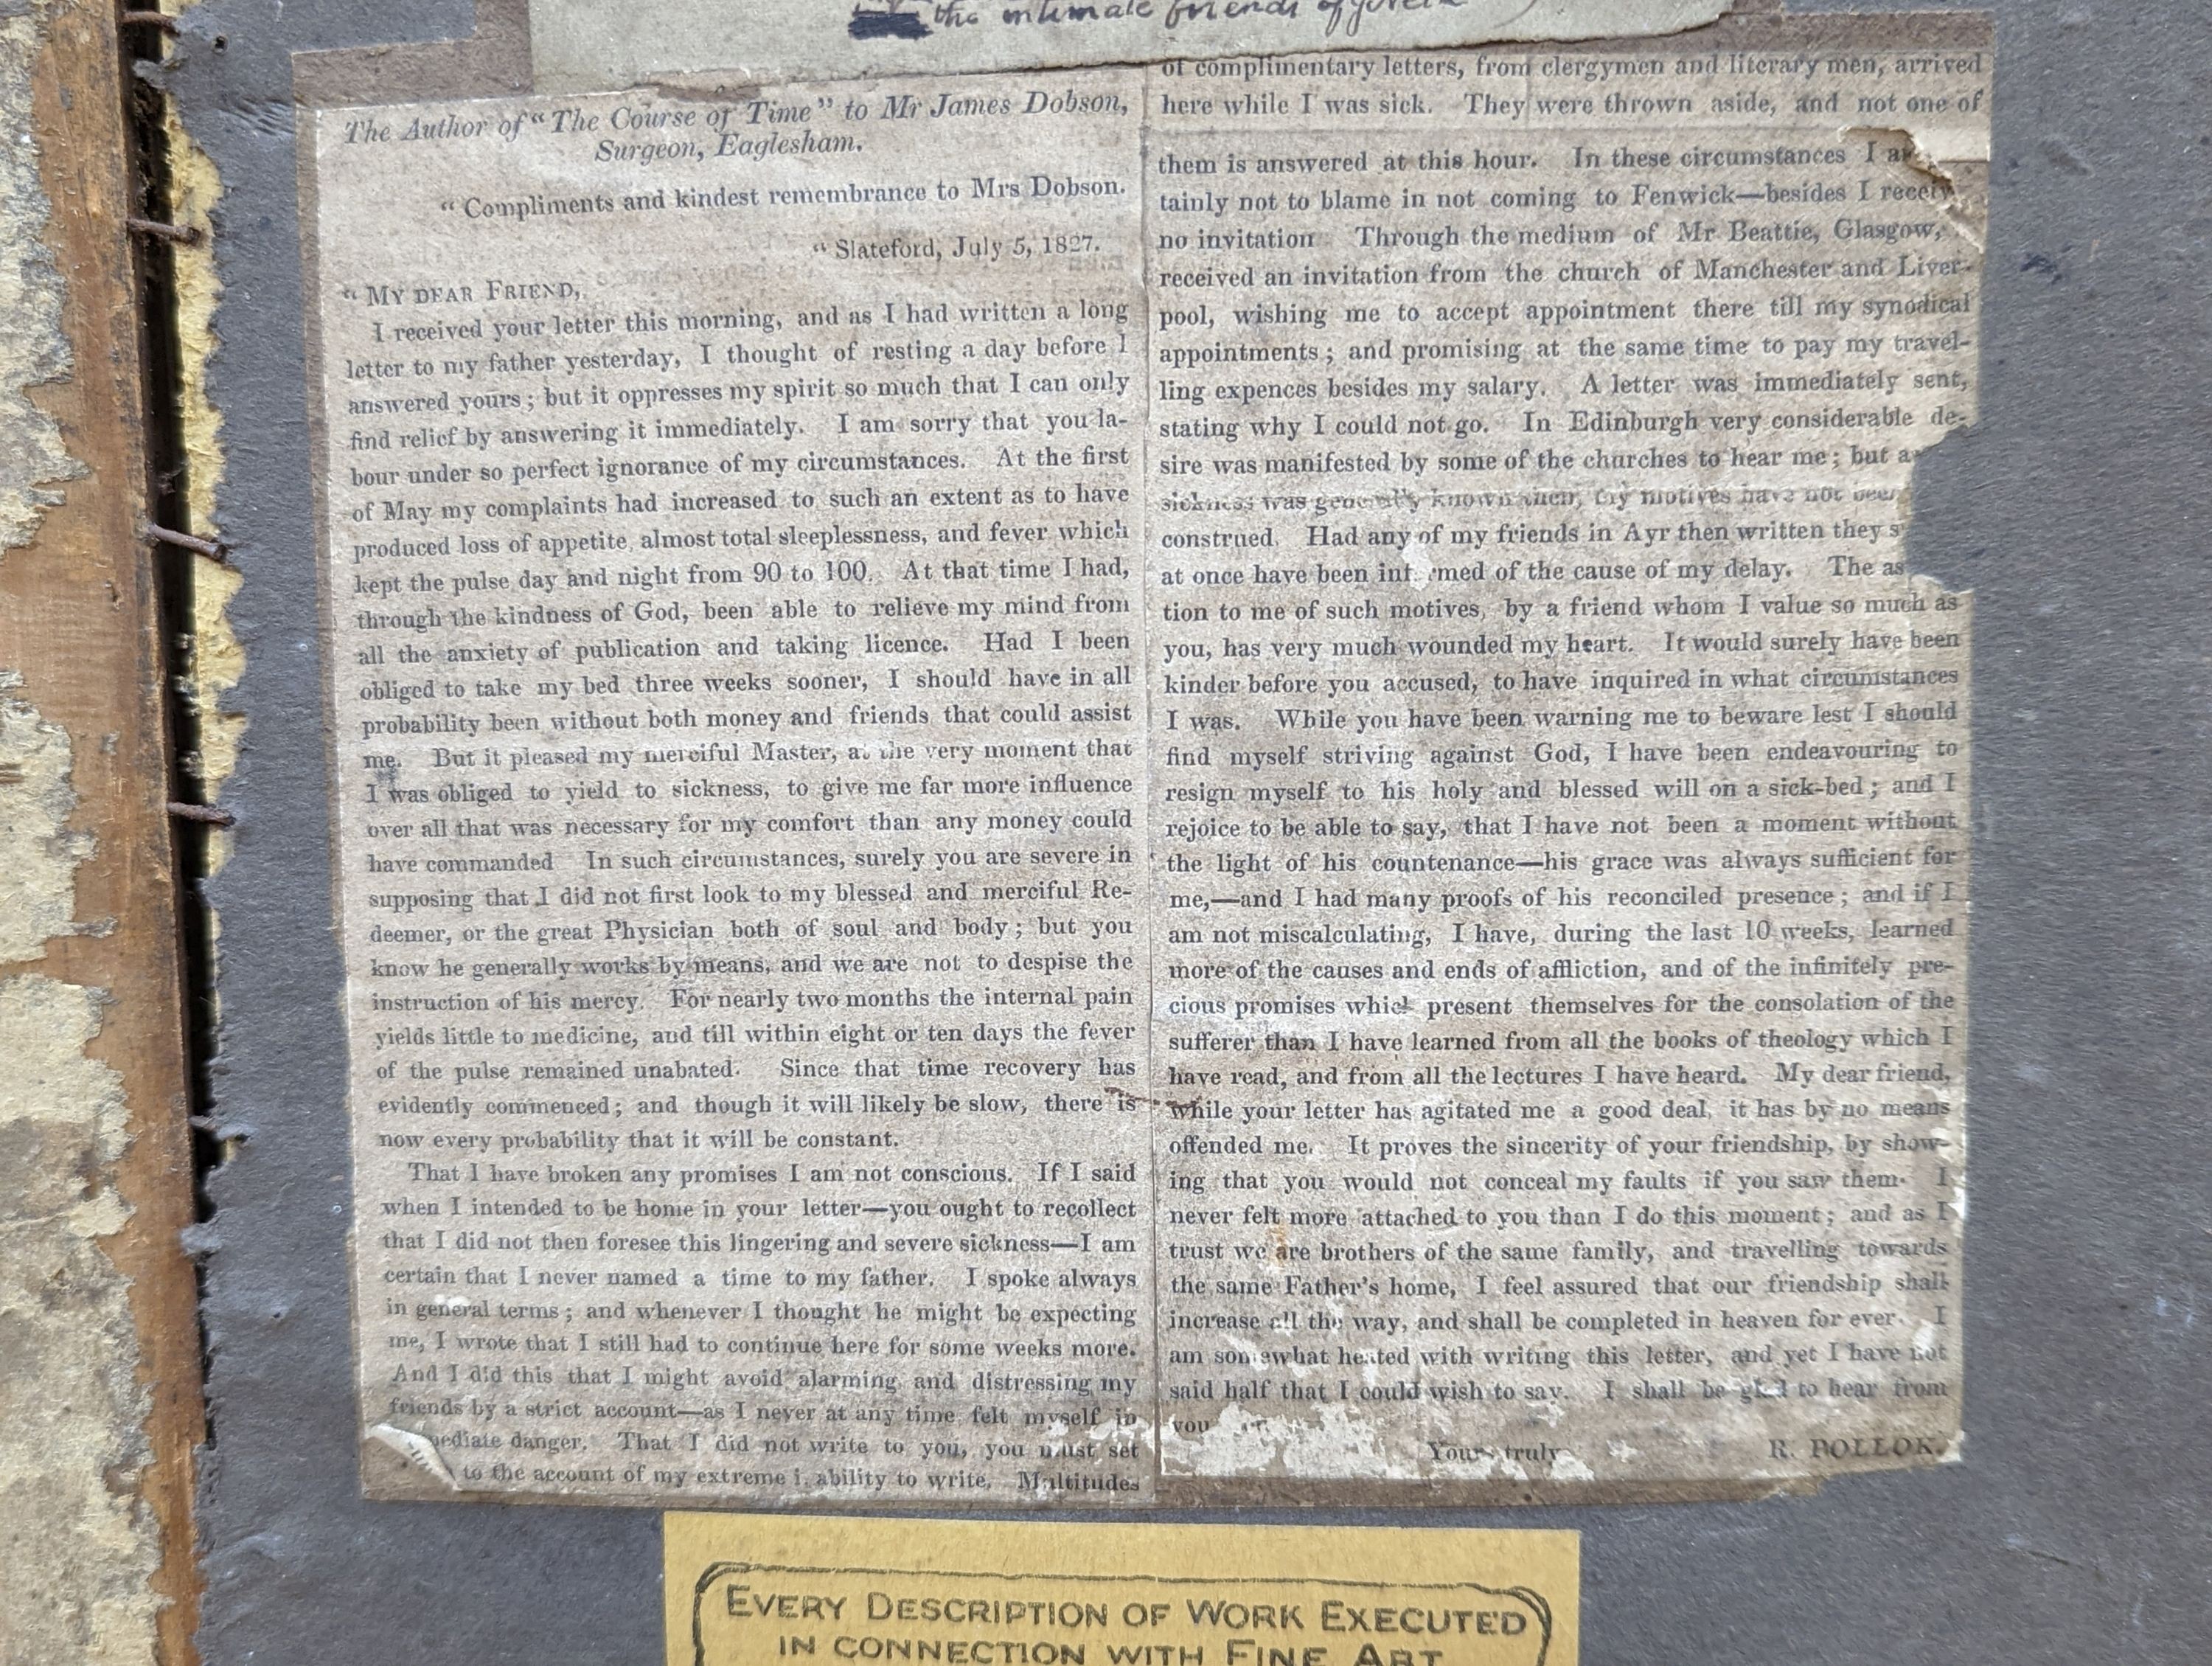 the intimate friends of
The Author of "The Course of Time" to Mr James Dobson,
Surgeon, Eaglesham.
"Compliments and kindest remembrance to Mrs Dobson.
"Slateford, July 5, 1827.
"MY DEAR FRIEND,
I received your letter this morning, and as I had written a long
letter to my father yesterday, I thought of resting a day before I
answered yours; but it oppresses my spirit so much that I can only
find relief by answering it immediately. I am sorry that you la-
bour under so perfect ignorance of my circumstances. At the first
of May my complaints had increased to such an extent as to have
produced loss of appetite, almost total sleeplessness, and fever which
kept the pulse day and night from 90 to 100. At that time I had,
through the kindness of God, been able to relieve my mind from
all the anxiety of publication and taking licence. Had I been
obliged to take my bed three weeks sooner, I should have in all
probability been without both money and friends that could assist
me. But it pleased my merciful Master, at the very moment that
I was obliged to yield to sickness, to give me far more influence
over all that was necessary for my comfort than any money could
have commanded In such circumstances, surely you are severe in
supposing that I did not first look to my blessed and merciful Re-
deemer, or the great Physician both of soul and body; but you
know he generally works by means, and we are not to despise the
instruction of his mercy. For nearly two months the internal pain
yields little to medicine, and till within eight or ten days the fever
of the pulse remained unabated. Since that time recovery has
evidently commenced; and though it will likely be slow, there is
now every probability that it will be constant.
That I have broken any promises I am not conscious. If I said
when I intended to be home in your letter—you ought to recollect
that I did not then foresee this lingering and severe sickness—I am
certain that I never named a time to my father. I spoke always
in general terms; and whenever I thought he might be expecting
me, I wrote that I still had to continue here for some weeks more.
And I did this that I might avoid alarming and distressing my
friends by a strict account—as I never at any time felt myself in
mediate danger. That I did not write to you, you must set
to the account of my extreme inability to write. Multitudes
of complimentary letters, from clergymen and literary men, arrived
here while I was sick. They were thrown aside, and not one of
them is answered at this hour. In these circumstances I
tainly not to blame in not coming to Fenwick—besides I
no invitation Through the medium of Mr Beattie, Glasgow,
received an invitation from the church of Manchester and Liver-
pool, wishing me to accept appointment there till my synodical
appointments; and promising at the same time to pay my travel-
ling expences besides my salary. A letter was immediately sent,
stating why I could not go. In Edinburgh very considerable de-
sire was manifested by some of the churches to hear me; but
sickness was generally known then, my motives have not been
construed. Had any of my friends in Ayr then written they
at once have been informed of the cause of my delay. The as
tion to me of such motives, by a friend whom I value so much as
you, has very much wounded my heart. It would surely have been
kinder before you accused, to have inquired in what circumstances
I was. While you have been warning me to beware lest I should
find myself striving against God, I have been endeavouring to
resign myself to his holy and blessed will on a sick-bed; and I
rejoice to be able to say, that I have not been a moment without
the light of his countenance—his grace was always sufficient for
me,—and I had many proofs of his reconciled presence; and if I
am not miscalculating, I have, during the last 10 weeks, learned
more of the causes and ends of affliction, and of the infinitely pre-
cious promises which present themselves for the consolation of the
sufferer than I have learned from all the books of theology which I
have read, and from all the lectures I have heard. My dear friend,
while your letter has agitated me a good deal, it has by no means
offended me. It proves the sincerity of your friendship, by show-
ing that you would not conceal my faults if you saw them. I
never felt more attached to you than I do this moment; and as I
trust we are brothers of the same family, and travelling towards
the same Father's home, I feel assured that our friendship shall
increase all the way, and shall be completed in heaven for ever. I
am somewhat heated with writing this letter, and yet I have not
said half that I could wish to say. I shall be glad to hear from
you
Yours truly R. POLLOK.
EVERY DESCRIPTION OF WORK EXECUTED
IN CONNECTION WITH FINE ART